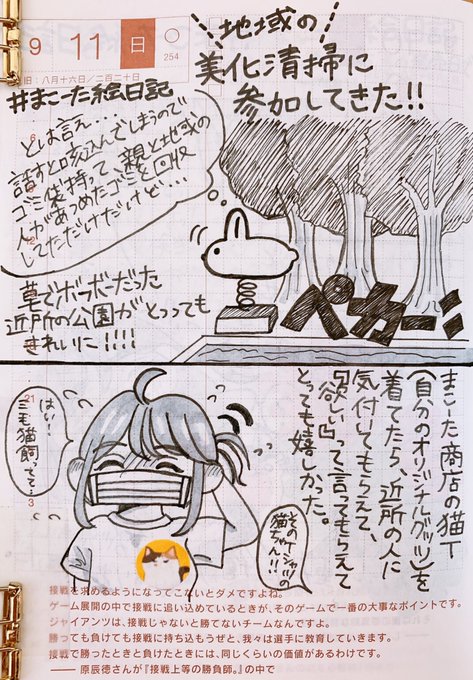 9 11 日
254
旧：八月十六日／二百二十日
地域の
美化清掃に
参加してきた!!
#まこーた絵日記
とは言え…
話すと咳込んでしまうので
ゴミ袋持って、親と地域の
人があつめたゴミを回収
してただけだけど…
草でボーボーだった
近所の公園がとってても
きれいに!!!!
ペカーッ
まこーた商店の猫T
（自分のオリジナルグッツ）を
着てたら、近所の人に
気付いてもらえて、
『欲しい』って言ってもらえて
とっても嬉しかった。
はい！
三毛猫飼ってて…
そのTシャツの
猫ちゃん!!
21
3
接戦を求めるようになってこないとダメですよね。
ゲーム展開の中で接戦に追い込めているときが、そのゲームで一番の大事なポイントです。
ジャイアンツは、接戦じゃないと勝てないチームなんですよ。
勝っても負けても接戦に持ち込もうぜと、我々は選手に教育していきます。
接戦で勝ったときと負けたときには、同じくらいの価値があるわけです。
── 原辰徳さんが『接戦上等の勝負師。』の中で